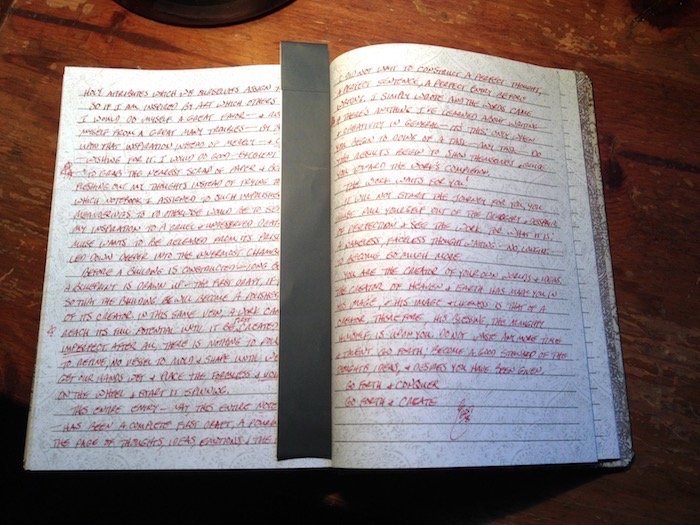 HOLY ATTRIBUTES WHICH WE OURSELVES ASSIGN
SO IF I AM INSPIRED BY ART WHICH OTHERS
I WOULD DO MYSELF A GREAT FAVOR —
MYSELF FROM A GREAT MANY TROUBLES — BY
UPON THAT INSPIRATION INSTEAD OF MERELY —
WISHING FOR IT. I WOULD DO GOOD
TO GRAB THE NEAREST SCRAP OF PAPER &
FLESHING OUT MY THOUGHTS INSTEAD OF TRYING TO
WHICH NOTEBOOK I ASSIGNED TO SUCH
MEANDERINGS. TO DO OTHERWISE WOULD BE TO
MY INSPIRATION TO A CRUEL & UNDESERVED
MUSE WANTS TO BE RELEASED FROM ITS
LED DOWN DEEPER INTO THE INNERMOST
BEFORE A BUILDING IS CONSTRUCTED — LONG
A BLUEPRINT IS DRAWN UP — THE FIRST DRAFT, IF
SO THAT THE BUILDING WILL BECOME A
OF ITS CREATOR. IN THIS SAME VEIN, A WORK
REACH ITS FULL POTENTIAL UNTIL IT BE FIRST CREATED
IMPERFECT. AFTER ALL THERE IS NOTHING TO
TO REFINE, NO VESSEL TO MOLD & SHAPE UNTIL WE
GET OUR HANDS WET & PLACE THE FORMLESS &
ON THE WHEEL & START IT SPINNING.
THIS ENTIRE ENTRY — NAY THIS ENTIRE
HAS BEEN A COMPLETE FIRST DRAFT, A
THE PAGE OF THOUGHTS, IDEAS EMOTIONS & THE
I DID NOT WAIT TO CONSTRUCT A PERFECT THOUGHT,
A PERFECT SENTENCE, A PERFECT ENTRY BEFORE
WRITING. I SIMPLY WROTE AND THE WORDS CAME.
IF THERE'S ANYTHING I'VE LEARNED ABOUT WRITING
& CREATIVITY IN GENERAL — IT'S THIS: ONLY WHEN
YOU BEGIN TO DOING OF A TASK — ANY TASK — DO
THE RESULTS BEGIN TO SHOW THEMSELVES & GUIDE
YOU TOWARD THE WORK'S COMPLETION.
THE WORK WAITS FOR YOU!
IT WILL NOT START THE JOURNEY FOR YOU. YOU
MUST PULL YOURSELF OUT OF THE
OF PERFECTION & SEE THE WORK FOR WHAT IT IS:
A NAMELESS, FACELESS THOUGHT WAITING — NO, LONGING —
TO BECOME SO MUCH MORE.
YOU ARE THE CREATOR OF YOUR OWN WORLDS & IDEAS.
THE CREATOR OF HEAVEN & EARTH HAS MADE YOU IN
HIS IMAGE, & HIS IMAGE & LIKENESS IS THAT OF A
CREATOR. THEREFORE HIS BLESSING, THE ALMIGHTY
HIMSELF, IS UPON YOU. DO NOT WASTE ANY MORE TIME
& TALENT. GO FORTH! BECOME A GOOD STEWARD OF THE
THOUGHTS, IDEAS, & DESIRES YOU HAVE BEEN GIVEN.
GO FORTH & CONQUER
GO FORTH & CREATE